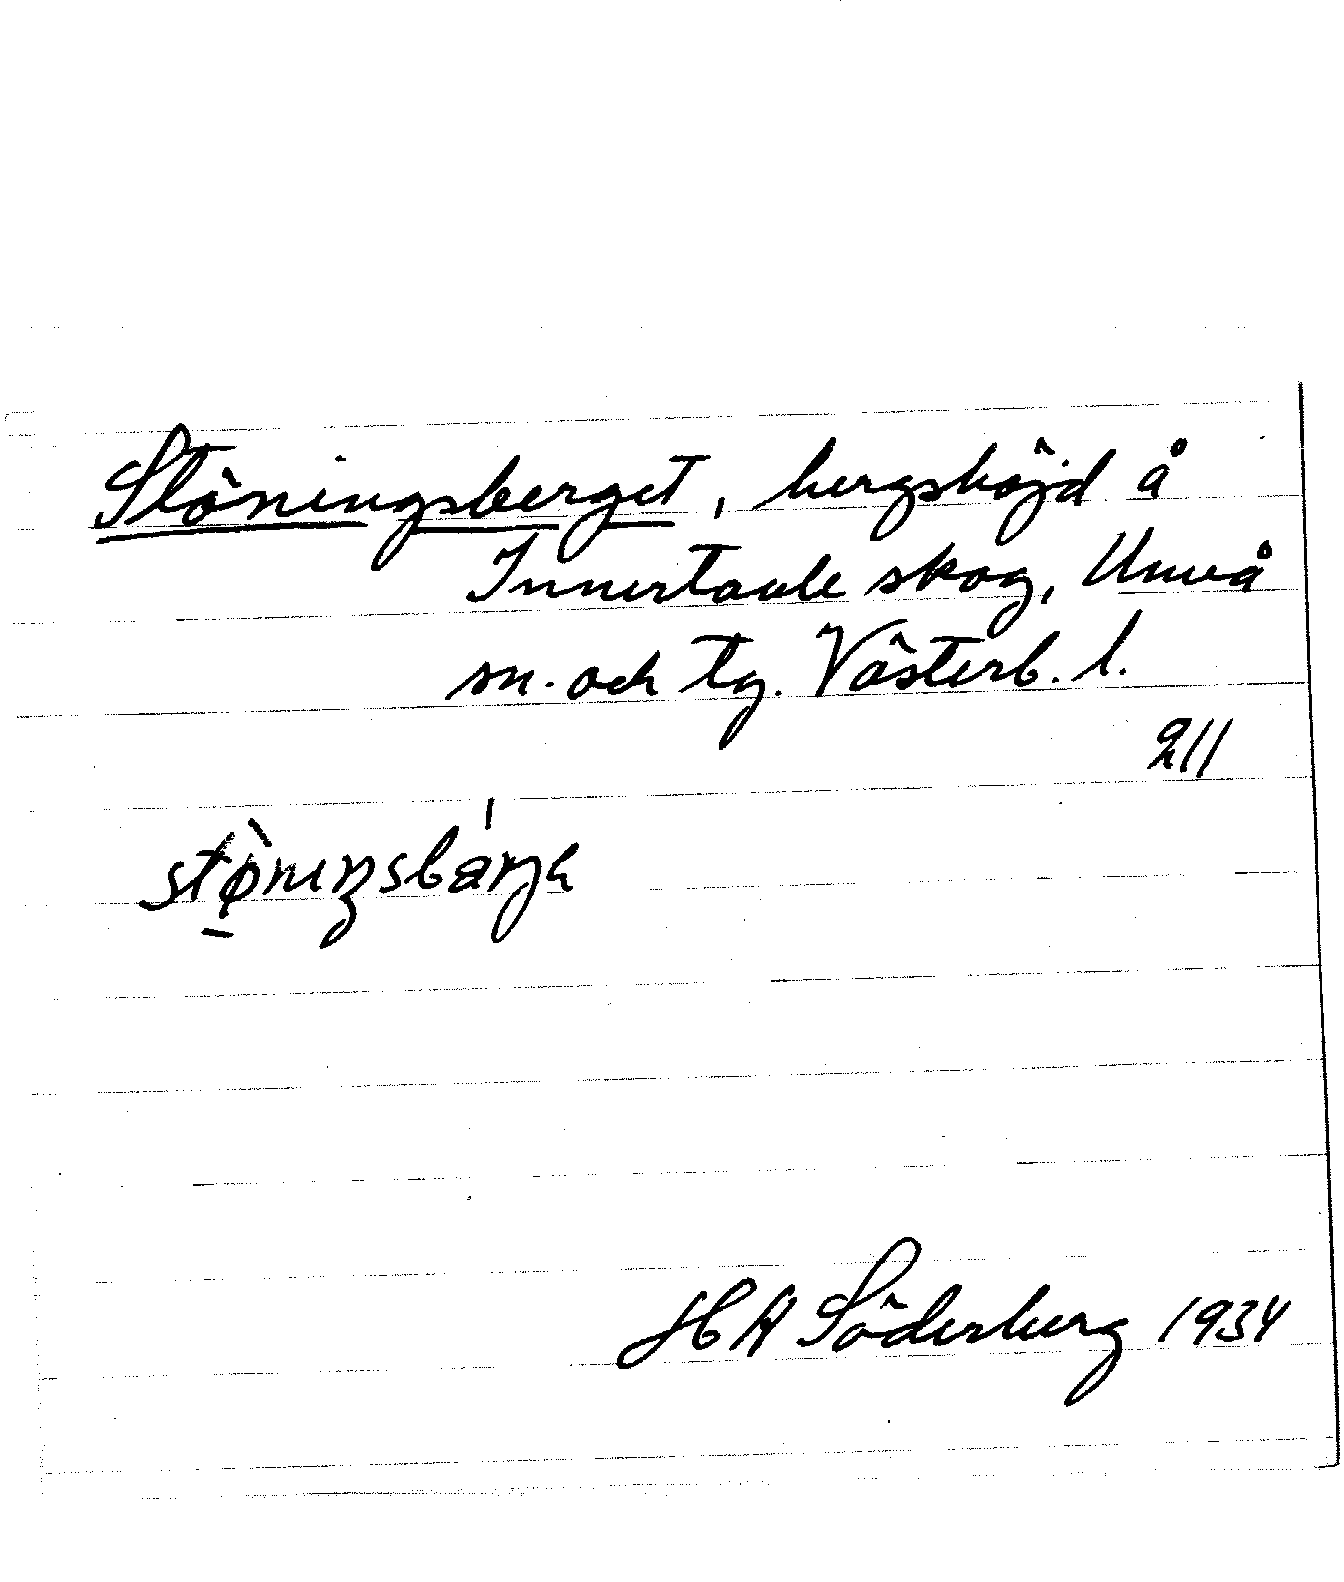 Stöningsberget, bergshöjd å
Innertavle skog, Umeå
sn. och tg. Västerb. l.
211
stø̀niŋsbárjɑ
H A Söderberg 1934